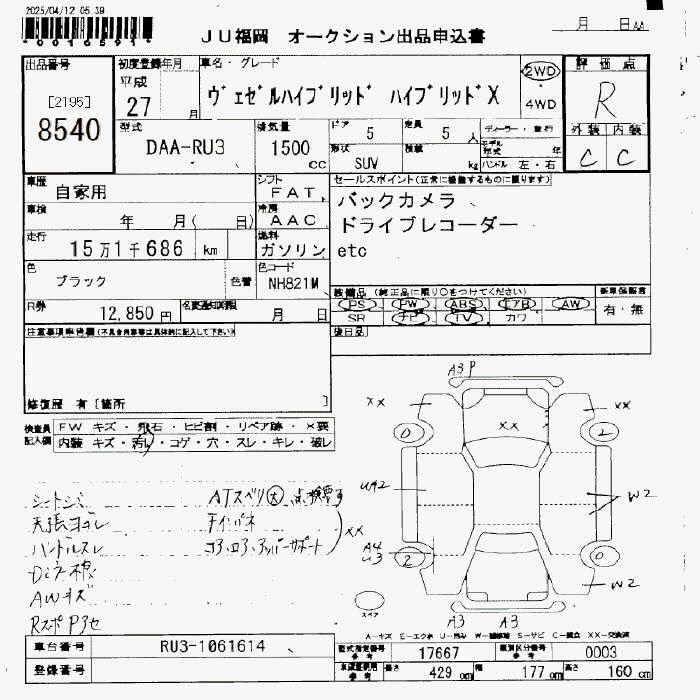 2025/04/12 05:39
*0016591*
JU福岡 オークション出品申込書
月 日 AA
出品番号
[2195]
8540
初度登録年月
平成
27
月
車名・グレード
ヴェゼルハイブリッド ハイブリッドX
2WD
4WD
評価点
R
外装 内装
C C
型式
DAA-RU3
排気量
1500
cc
ドア
5
定員
5
人
形状
SUV
積載
kg
ディーラー・並行
モデル
年式
年
ハンドル 左・右
車歴
自家用
シフト
FAT
セールスポイント(正常に機能するものに限ります)
バックカメラ
ドライブレコーダー
etc
車検
年 月( 日)
冷房
AAC
走行
15万1千686 km
燃料
ガソリン
色
ブラック
色替
色コード
NH821M
装備品 (純正品に限り○をつけてください)
PS PW ABS エアB AW
SR ナビ TV カワ
新車保証書
有・無
R券
12,850 円
名変通知期限
月 日
後日品
注意事項申告欄(不具合内容等は具体的に記入して下さい)
修復歴 有 [箇所 ]
検査員
記入欄
FW キズ・飛石・ヒビ割・リペア跡・X要
内装 キズ・汚れ・コゲ・穴・スレ・キレ・破レ
シートシミ
天張ヨゴレ
ハンドルスレ
AWキズ
ATスベリ大 点検要す
XX
A3P
XX
XX
XX
2
U42
W2
A4
U3
2
W2
A3 A3
スペア
A－キズ E－エクボ U－凹み W－補修跡 S－サビ C－腐食 XX－交換済
車台番号
RU3-1061614
登録番号
型式指定番号
参考
17667
類別区分番号
参考
0003
車両置場用
参考
長さ
429 cm
幅
177 cm
高さ
160 cm